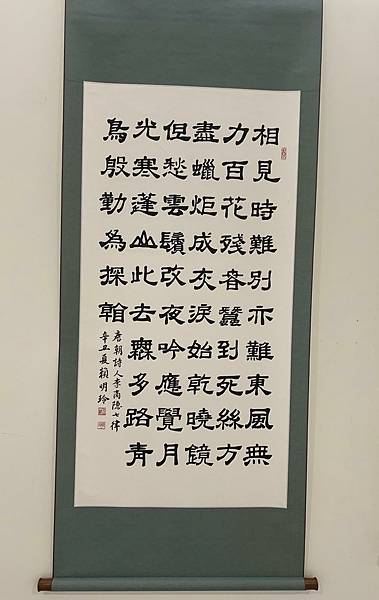 相見時難別亦難東風無
力百花殘春蠶到死絲方
盡蠟炬成灰淚始乾曉鏡
但愁雲鬢改夜吟應覺月
光寒蓬山此去無多路青
鳥殷勤為探看
唐朝詩人李商隱七律
辛丑夏賴明玲